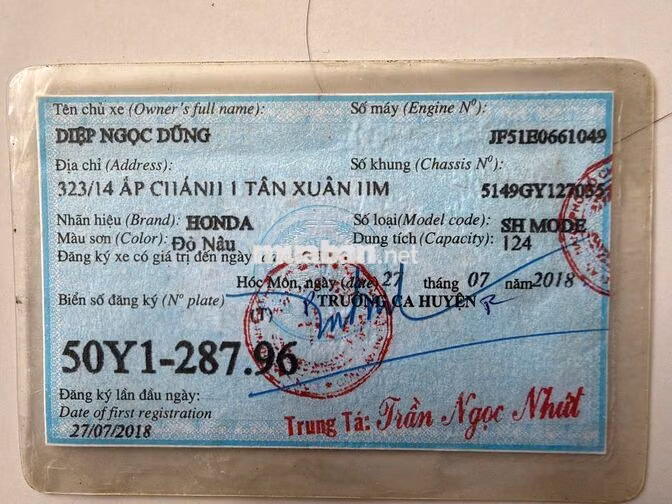 Tên chủ xe (Owner's full name):
DIỆP NGỌC DŨNG
Số máy (Engine Nº):
JF51E0661049
Địa chỉ (Address):
323/14 ẤP CHÁNH 1 TÂN XUÂN HM
Số khung (Chassis Nº):
5149GY127055
Nhãn hiệu (Brand): HONDA
Số loại (Model code): SH MODE
Màu sơn (Color): Đỏ Nâu
Dung tích (Capacity): 124
Đăng ký xe có giá trị đến ngày
muaban.net
Hóc Môn, ngày (date) 27 tháng 07 năm 2018
Biển số đăng ký (Nº plate)
TRƯỞNG CA HUYỆN
50Y1-287.96
Đăng ký lần đầu ngày:
Date of first registration
27/07/2018
Trung Tá: Trần Ngọc Nhứt